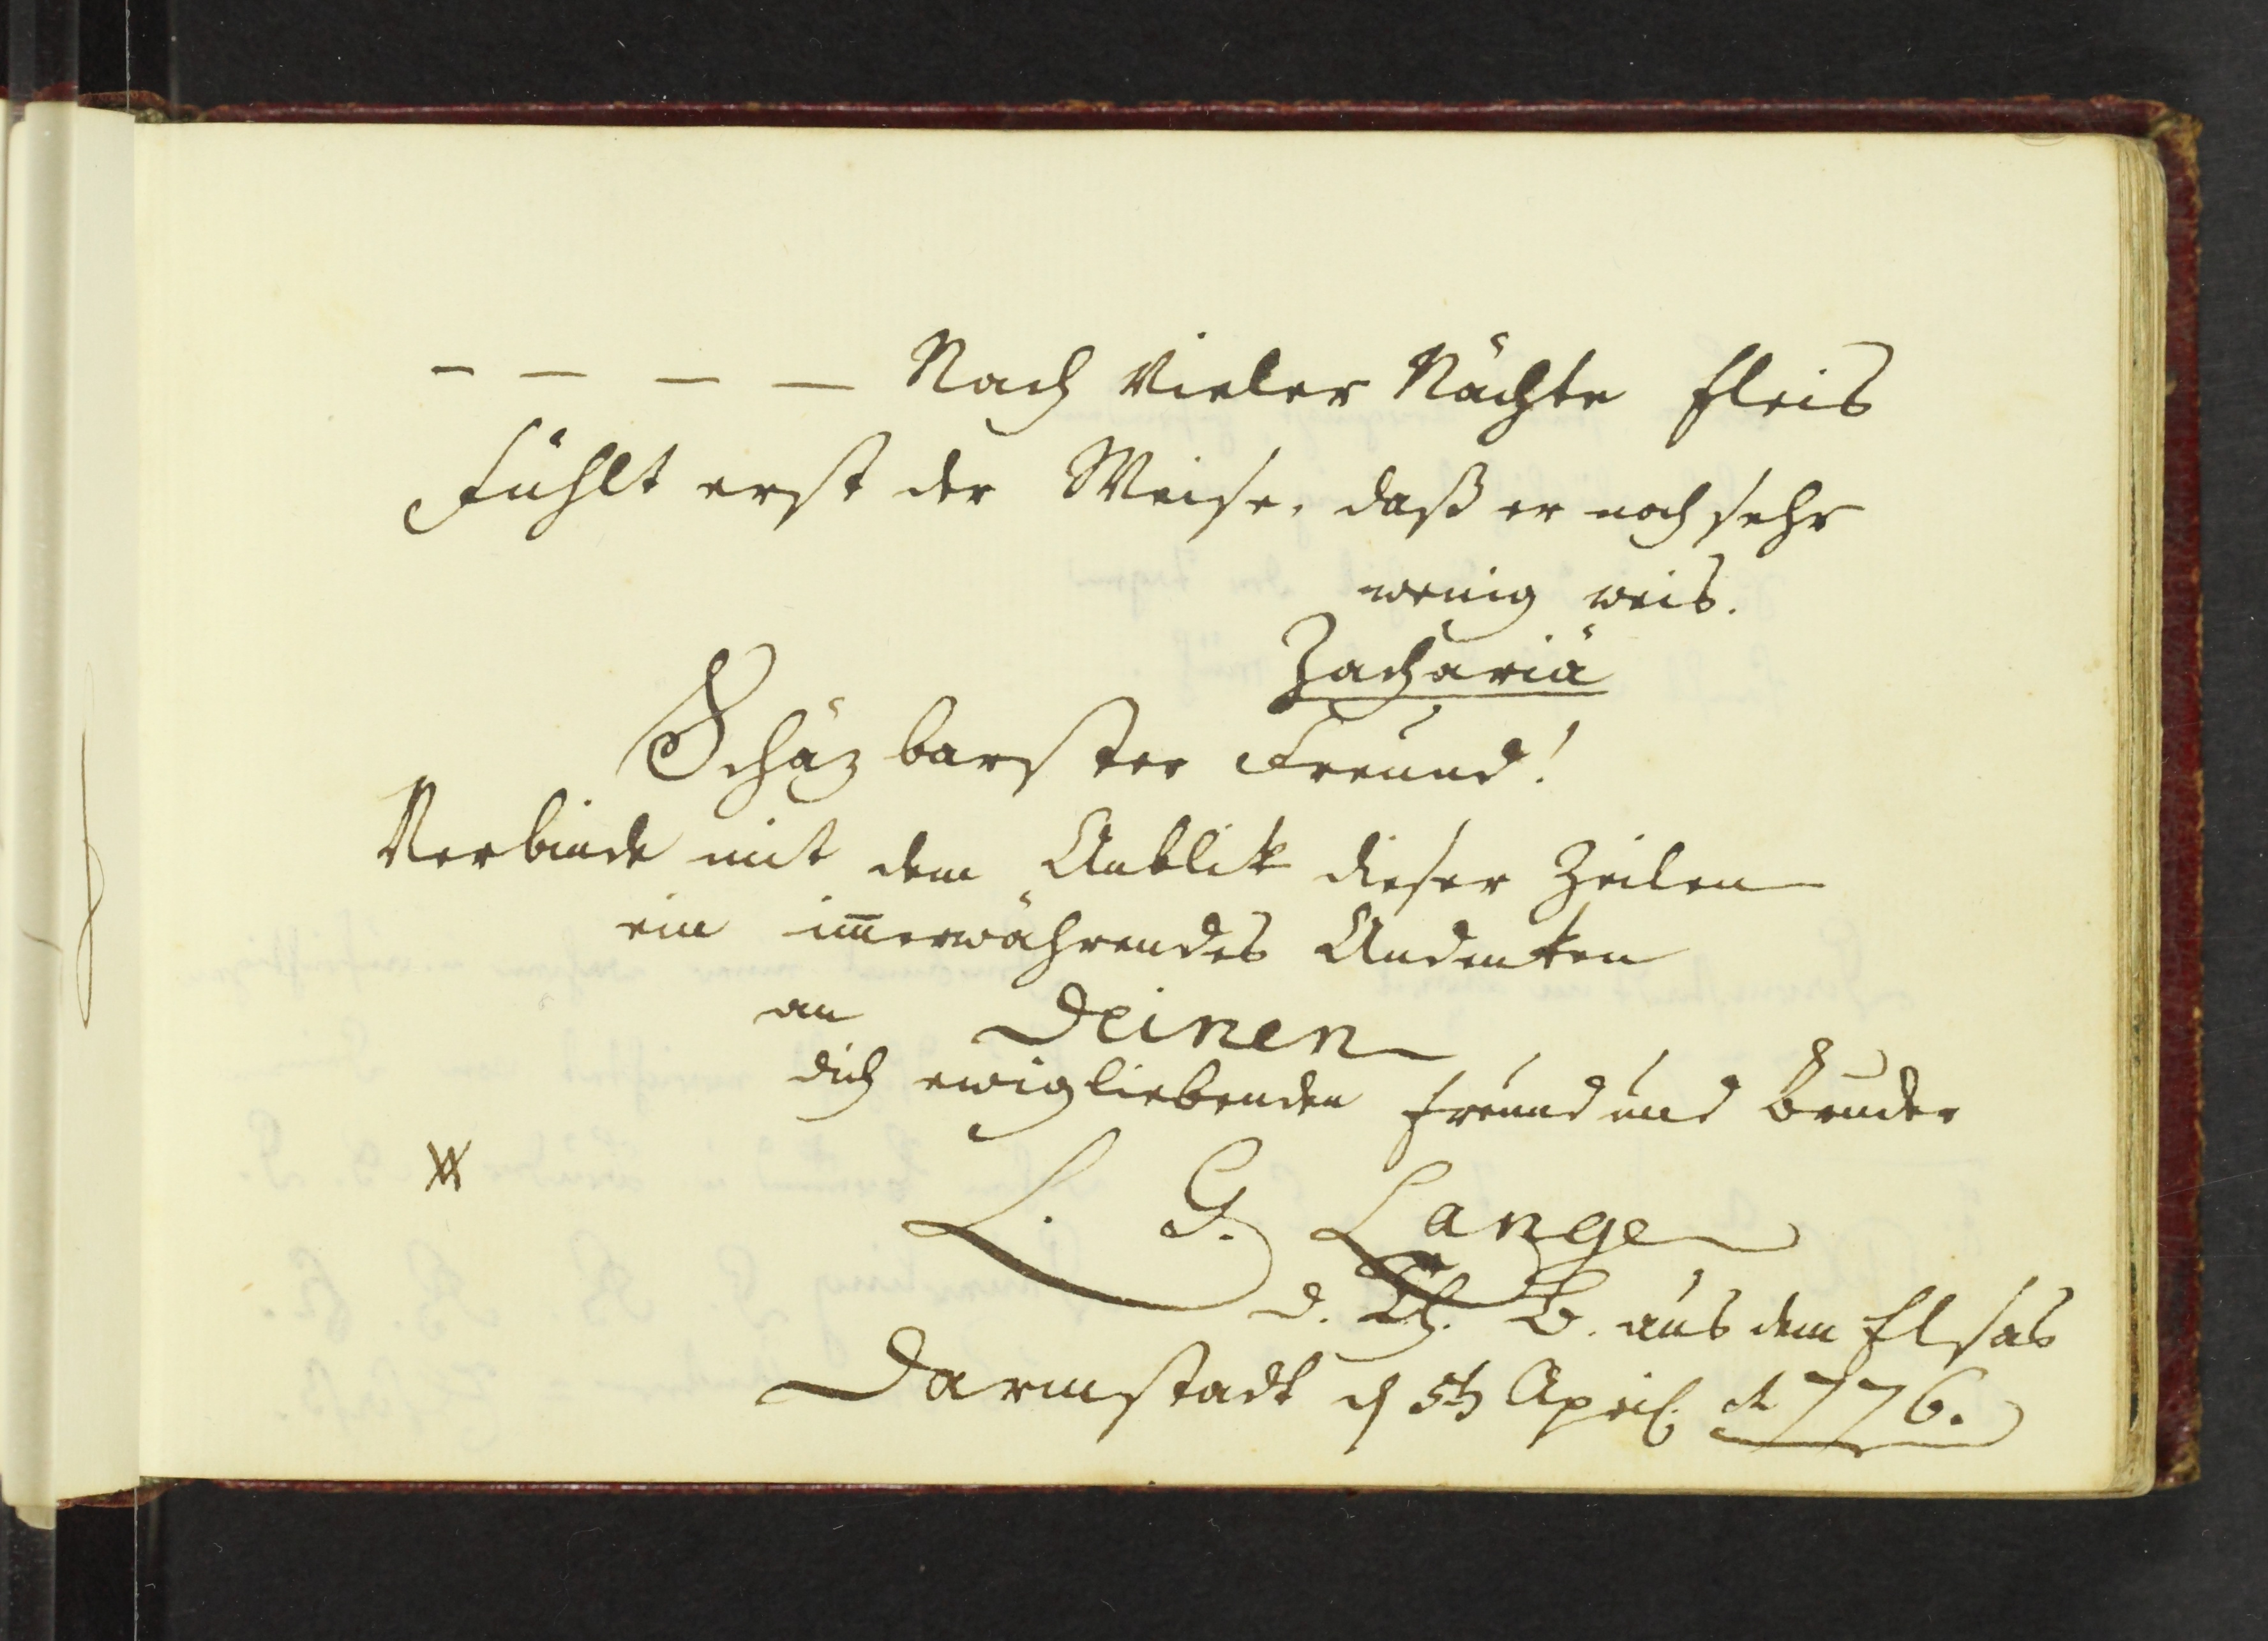 – – – – Nach vieler Nächte Fleis
Fühlt erst der Weise, daß er noch sehr
wenig weis.
Zachariä
Schäzbarster Freund!
Verbinde mit dem Anblik dieser Zeilen
ein im̅erwährendes Andenken
an Deinen
dich ewig liebenden Freund und Bruder
L. G. Lange
d. Th. B. aus dem Elsas
Darmstadt d 5th April. 1776.